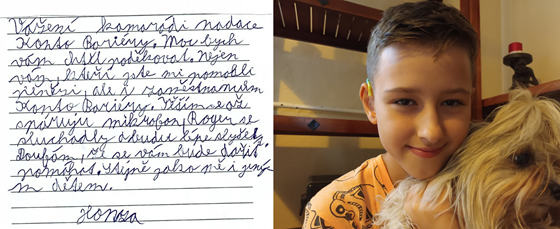 Vážení kamarádi nadace
Konto Bariéry. Moc bych
vám chtěl poděkovat. Nejen
vám, kteří jste mi pomohli
penězi, ale i zaměstnancům
Konto Bariéry. Těším se až
spáruji mikrofon Roger se
sluchadly a budu lépe slyšet.
Doufám, že se vám bude dařit
pomáhat. Stejně jako mě i jiným
dětem.
Honza